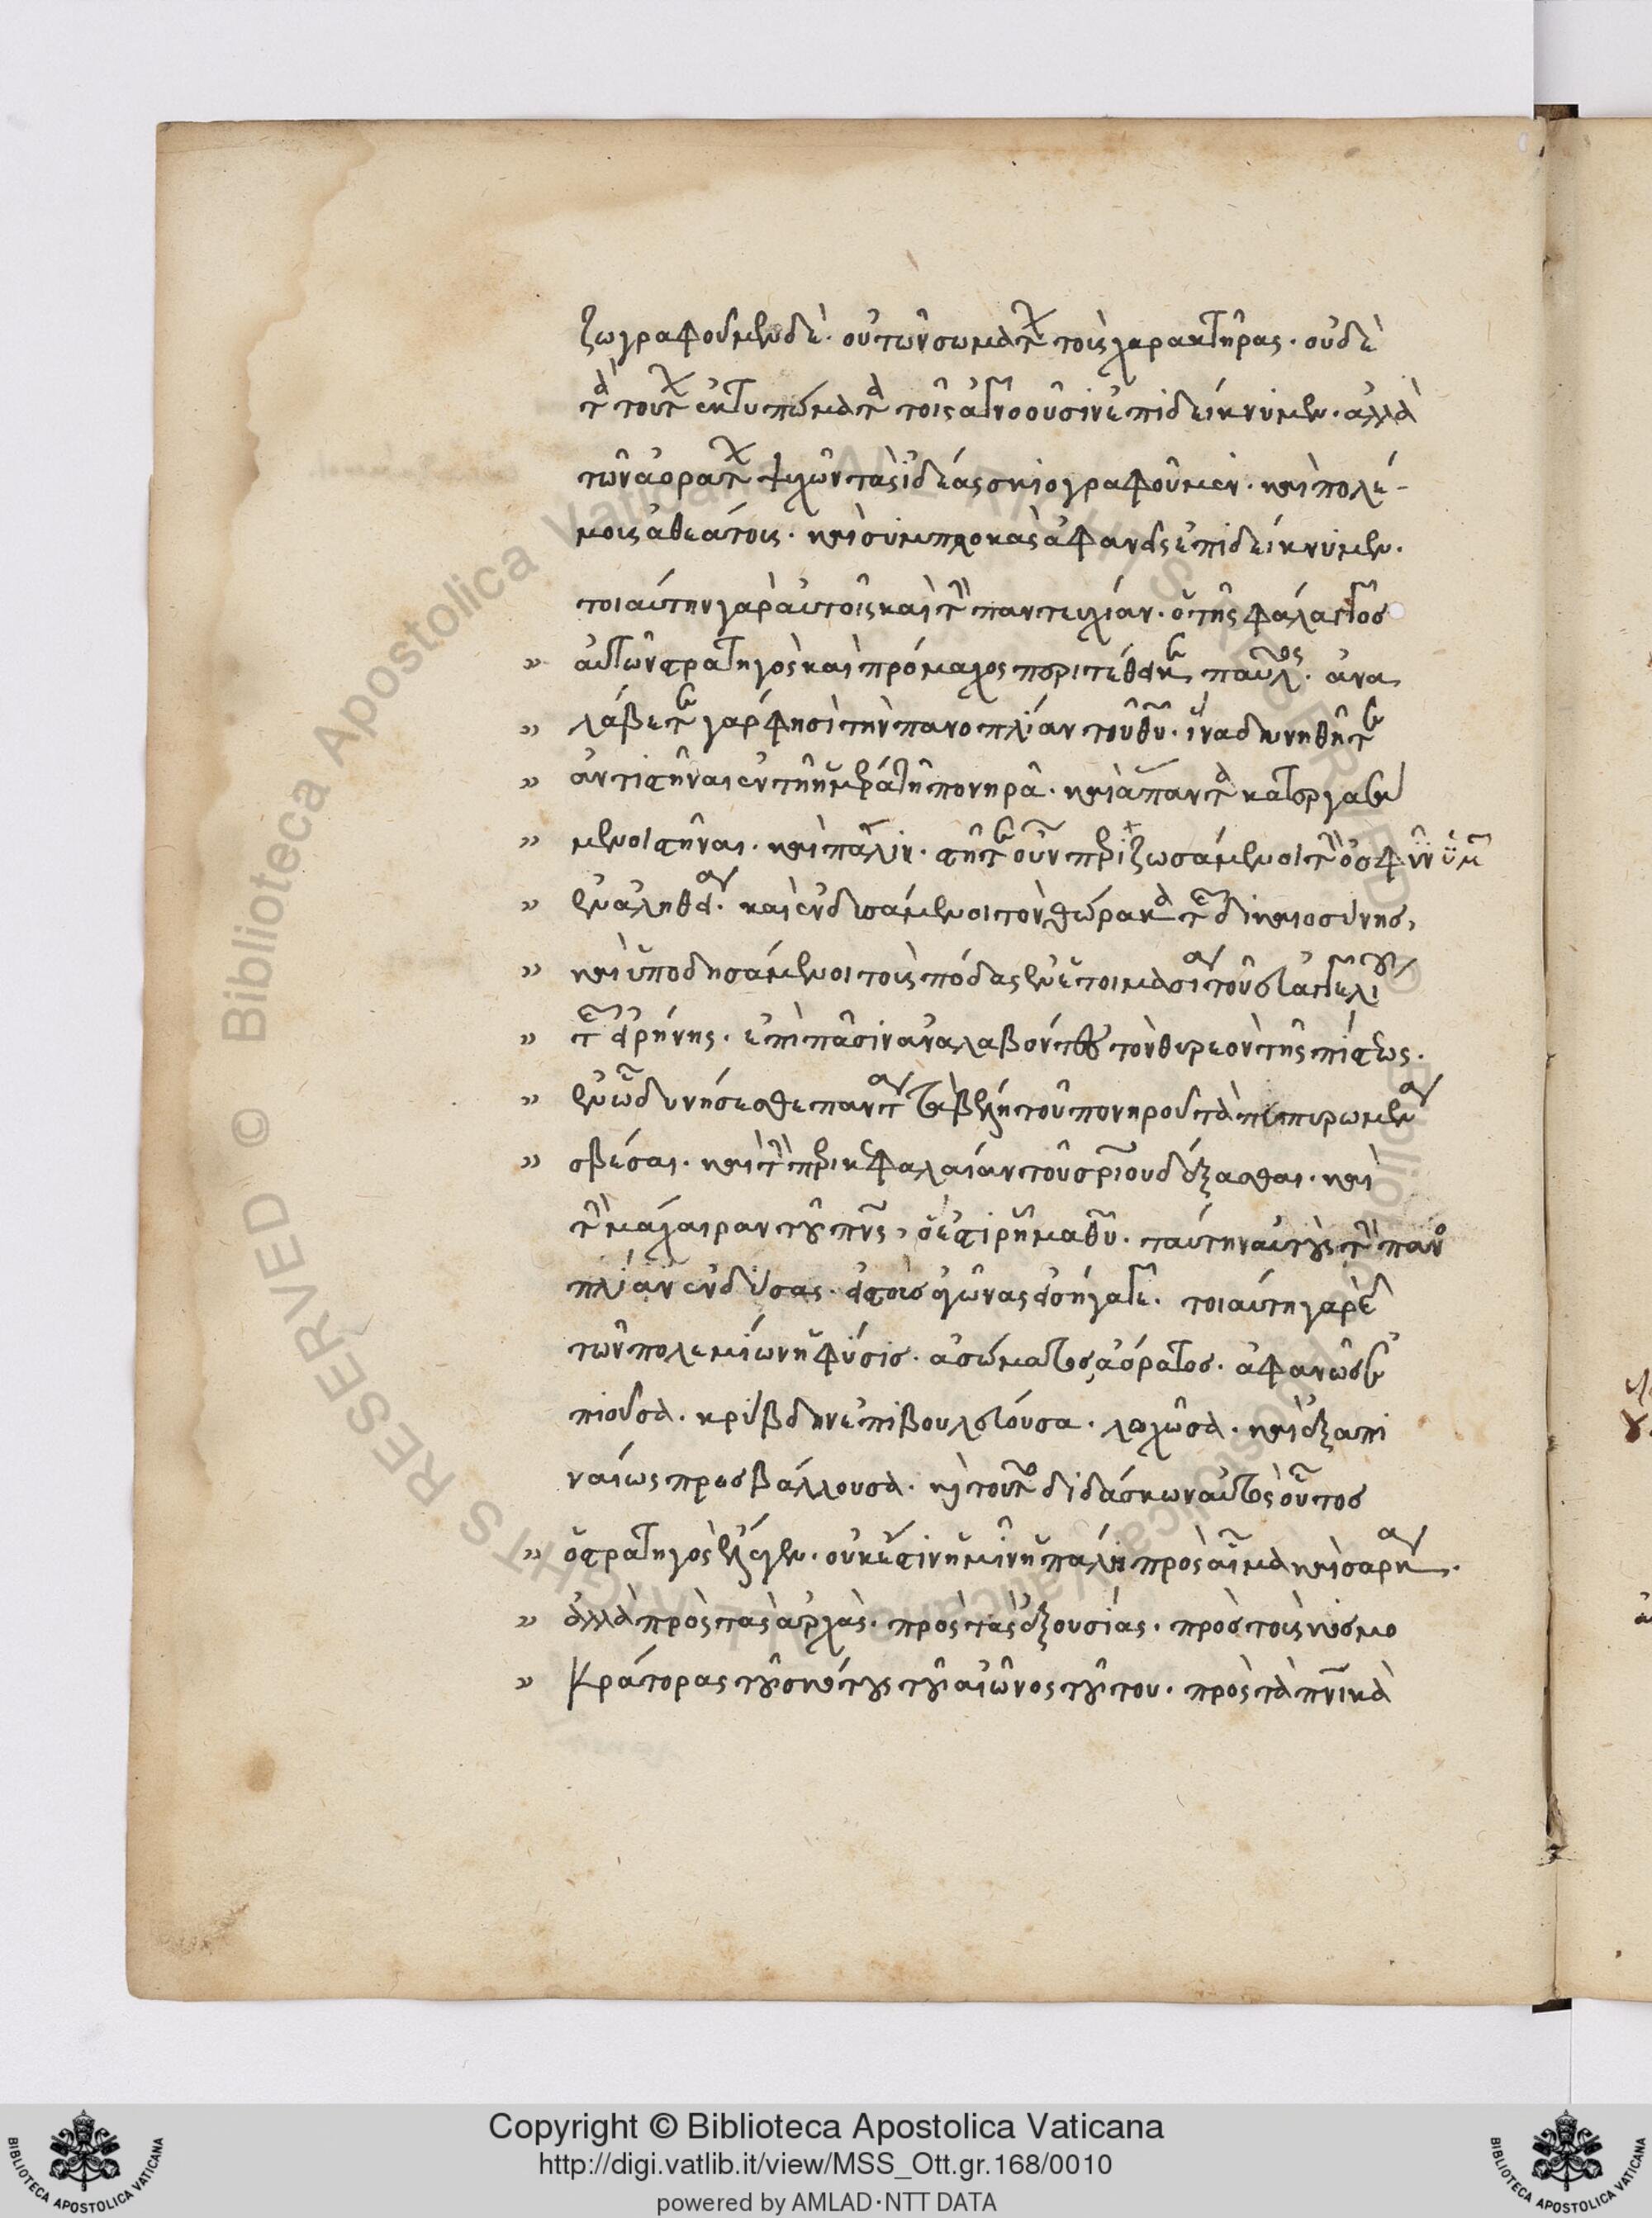 ζωγραφοῦμεν δὲ· οὐ τῶν σωμάτων τοὺς χαρακτῆρας· οὐδὲ
τὰ τούτων ἐκτυπώματα τοῖς ἀγνοοῦσιν ἐπιδείκνυμεν· ἀλλὰ
τῶν ἀοράτων ψυχῶν τὰς ἰδέας σκιογραφοῦμεν· καὶ πολέ-
μους ἀθεάτους· καὶ συμπλοκὰς ἀφανεῖς ἐπιδείκνυμεν·
τοιαύτην γὰρ αὐτοῖς καὶ τὴν παντευχίαν· ὁ τῆς φάλαγγος
» αὐτῶν στρατηγὸς καὶ πρόμαχος περιτέθεικε παῦλος· ἀνα
» λάβετε γάρ φησὶ τὴν πανοπλίαν τοῦ θυ· ἵνα δυνηθῆτε
» ἀντιστῆναι ἐν τῆ ἡμέρα τῆ πονηρᾶ· καὶ ἅπαντα κατεργασά
» μενοι στῆναι· καὶ πάλιν· στῆτε οὖν περιζωσάμενοι τὴν ὀσφὺν ὑμῶν
» ἐν ἀληθεία· καὶ ἐνδυσάμενοι τὸν θώρακα τῆς δικαιοσύνης,
» καὶ ὑποδησάμενοι τοὺς πόδας ἐν ἑτοιμασία τοῦ εὐαγγελίου
» τῆς εἰρήνης· ἐπὶ πᾶσιν ἀναλαβόντες τὸν θυρεὸν τῆς πίστεως·
» ἐν ὧ δυνήσεσθε πάντα τὰ βέλη τοῦ πονηροῦ τὰ πεπυρωμένα
» σβέσαι· καὶ τὴν περικεφαλαίαν τοῦ σωτηρίου δέξασθαι· καὶ
τὴν μάχαιραν τοῦ πνς, ὅ ἐστι ῥῆμα θυ· ταύτην αὐτοὺς τὴν πανο
πλίαν ἐνδύσας· εἰς τοὺς ἀγῶνας εἰσήγαγε· τοιαύτη γὰρ ἦν
τῶν πολεμίων ἡ φύσις· ἀσώματος, ἀόρατος· ἀφανῶς ἐ
πιοῦσα· κρύβδην ἐπιβουλεύουσα· λοχῶσα· καὶ ἐξαπι
ναίως προσβάλλουσα· καὶ τοῦτο διδάσκων αὐτοὺς οὗτος
» ὁ στρατηγὸς ἔλεγεν· οὐκ ἔστιν ἡμῖν ἡ πάλη πρὸς αἷμα καὶ σάρκα·
» ἀλλὰ πρὸς τὰς ἀρχὰς· πρὸς τὰς ἐξουσίας· πρὸς τοὺς κοσμο
» κράτορας τοῦ σκότους τοῦ αἰῶνος τούτου· πρὸς τὰ πνικὰ
Copyright © Biblioteca Apostolica Vaticana
http://digi.vatlib.it/view/MSS_Ott.gr.168/0010
powered by AMLAD·NTT DATA